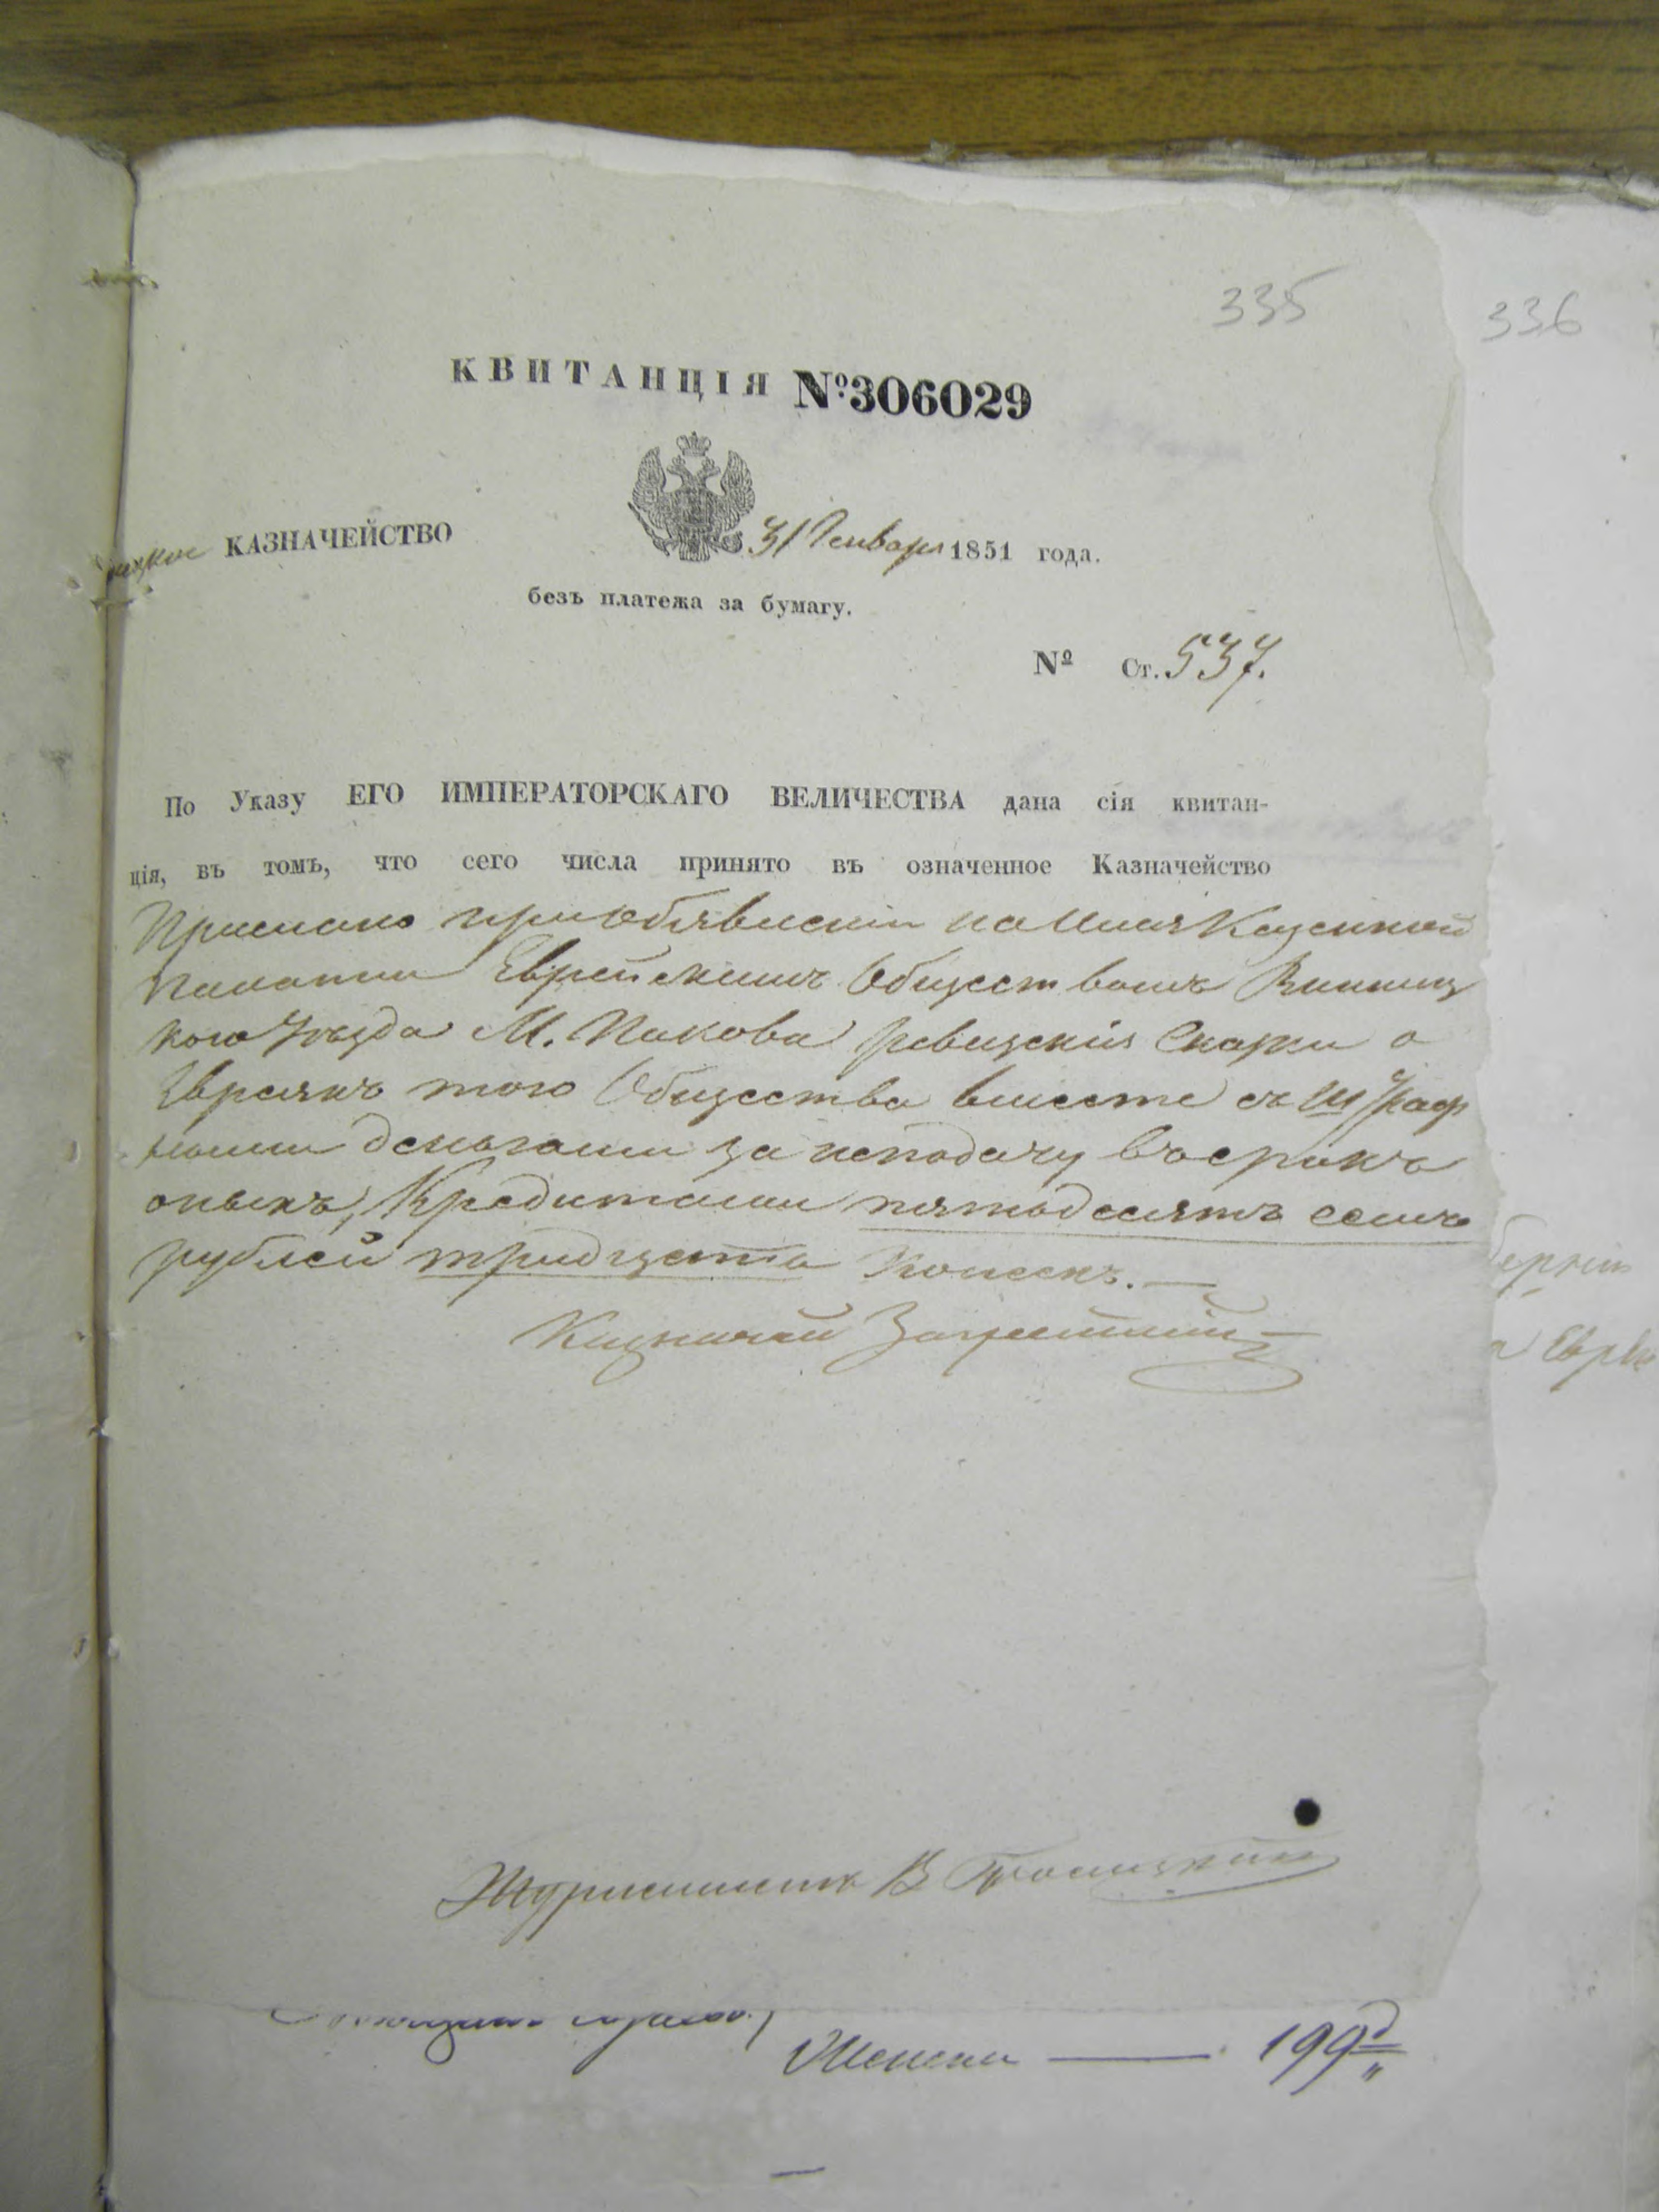 335
336
КВИТАНЦІЯ №306029
КАЗНАЧЕЙСТВО
31 Генваря 1851 года.
безъ платежа за бумагу.
№ Ст. 537.
По Указу ЕГО ИМПЕРАТОРСКАГО ВЕЛИЧЕСТВА дана сія квитан-
ція, въ томъ, что сего числа принято въ означенное Казначейство
при объявленіи на имя Казенной
Палаты Еврейскимъ Обществомъ Винниц
кого Уѣзда М. Пикова ревизскія Сказки о
Евреяхъ того Общества вместе съ Штраф
ными деньгами за неподачу въ срокъ
оныхъ, Кредитами пятьдесятъ семь
рублей тридцать Копеекъ.—
Казначей
Журналистъ В
Женска — 199